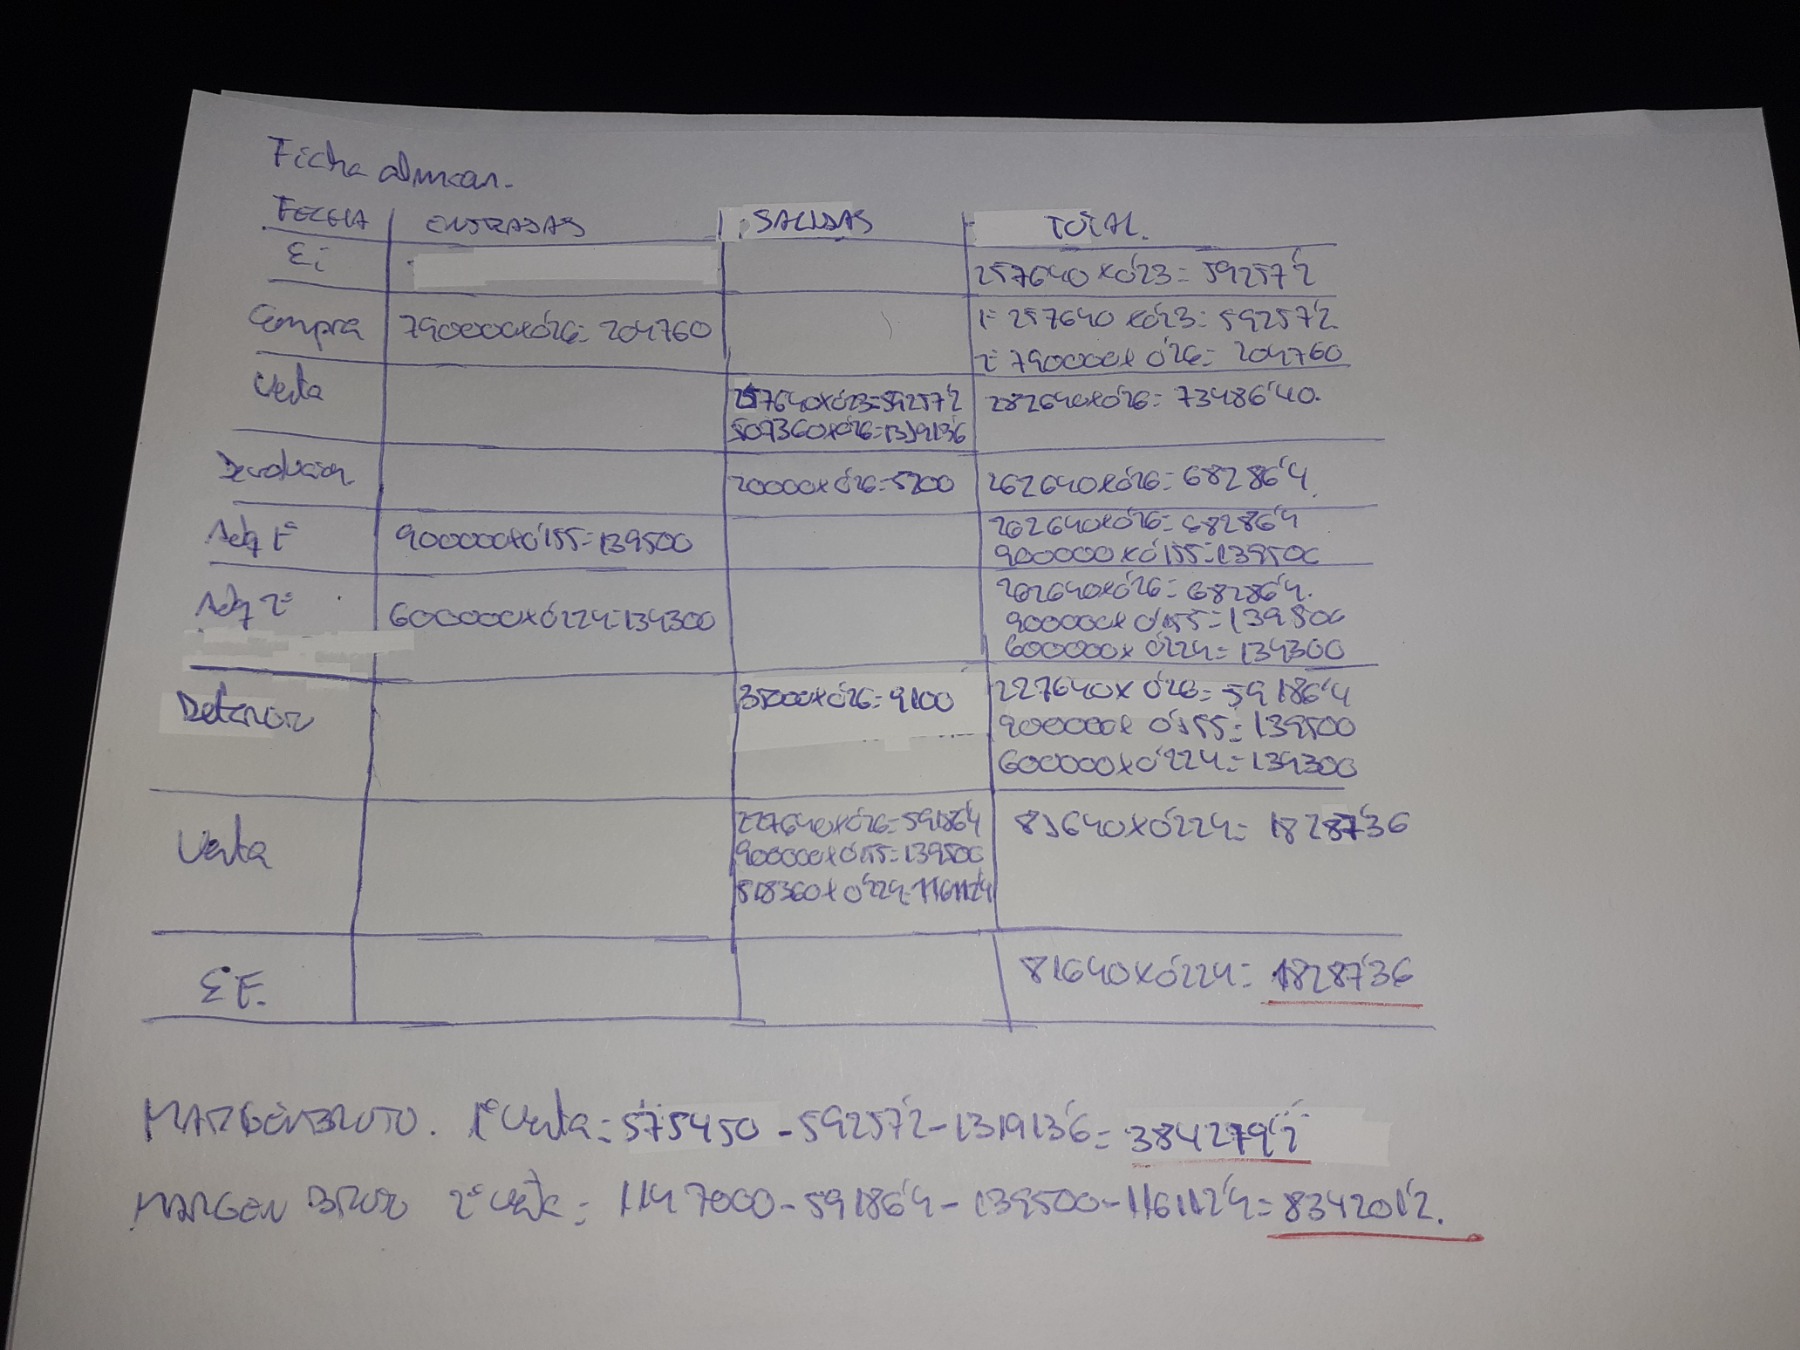 Ficha almacen.
FECHA ENTRADAS SALIDAS TOTAL.
Ei 257640 x 0'23 = 59257'2
Compra 790000x0'26= 204760 1ª 257640 x0'23= 59257'2
2ª 790000x 0'26= 204760
Venta 257640x0'23=59257'2 282640x0'26= 73486'40.
507360x0'26=131913'6
Devolucion 20000x0'26=5200 262640x0'26= 68286'4
Adq 1ª 900000x0'155=139500 262640x0'26= 68286'4
900000x0'155=139500
Adq 2ª 600000x0'224=134300 262640x0'26= 68286'4.
900000x 0'155=139500
600000x 0'224= 134300
Deterioro 35000x0'26=9100 227640x 0'26= 59186'4
900000x 0'155= 139500
600000x0'224=134300
Venta 227640x0'26=59186'4 81640x0'224= 18287'36
900000x0'155=139500
518360x0'224=116112'4
EF. 81640x0'224= 18287'36
MARGEN BRUTO. 1ª Venta = 575450 - 59257'2 - 131913'6 = 384279'2
MARGEN BRUTO 2ª Venta = 1147000 - 59186'4 - 139500 - 116112'4 = 834201'2.